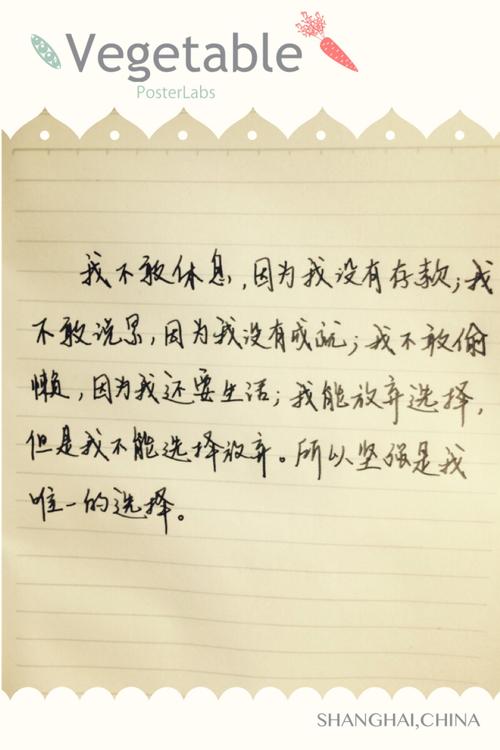 Vegetable
PosterLabs
我不敢休息,因为我没有存款;我
不敢说累,因为我没有成就;我不敢偷
懒,因为我还要生活;我能放弃选择,
但是我不能选择放弃。所以坚强是我
唯一的选择。
SHANGHAI,CHINA